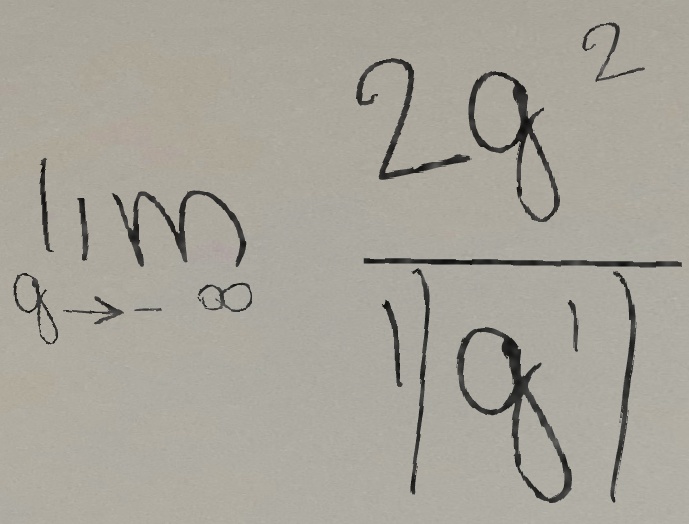 lim g → - ∞ 2g² / 1|g¹|